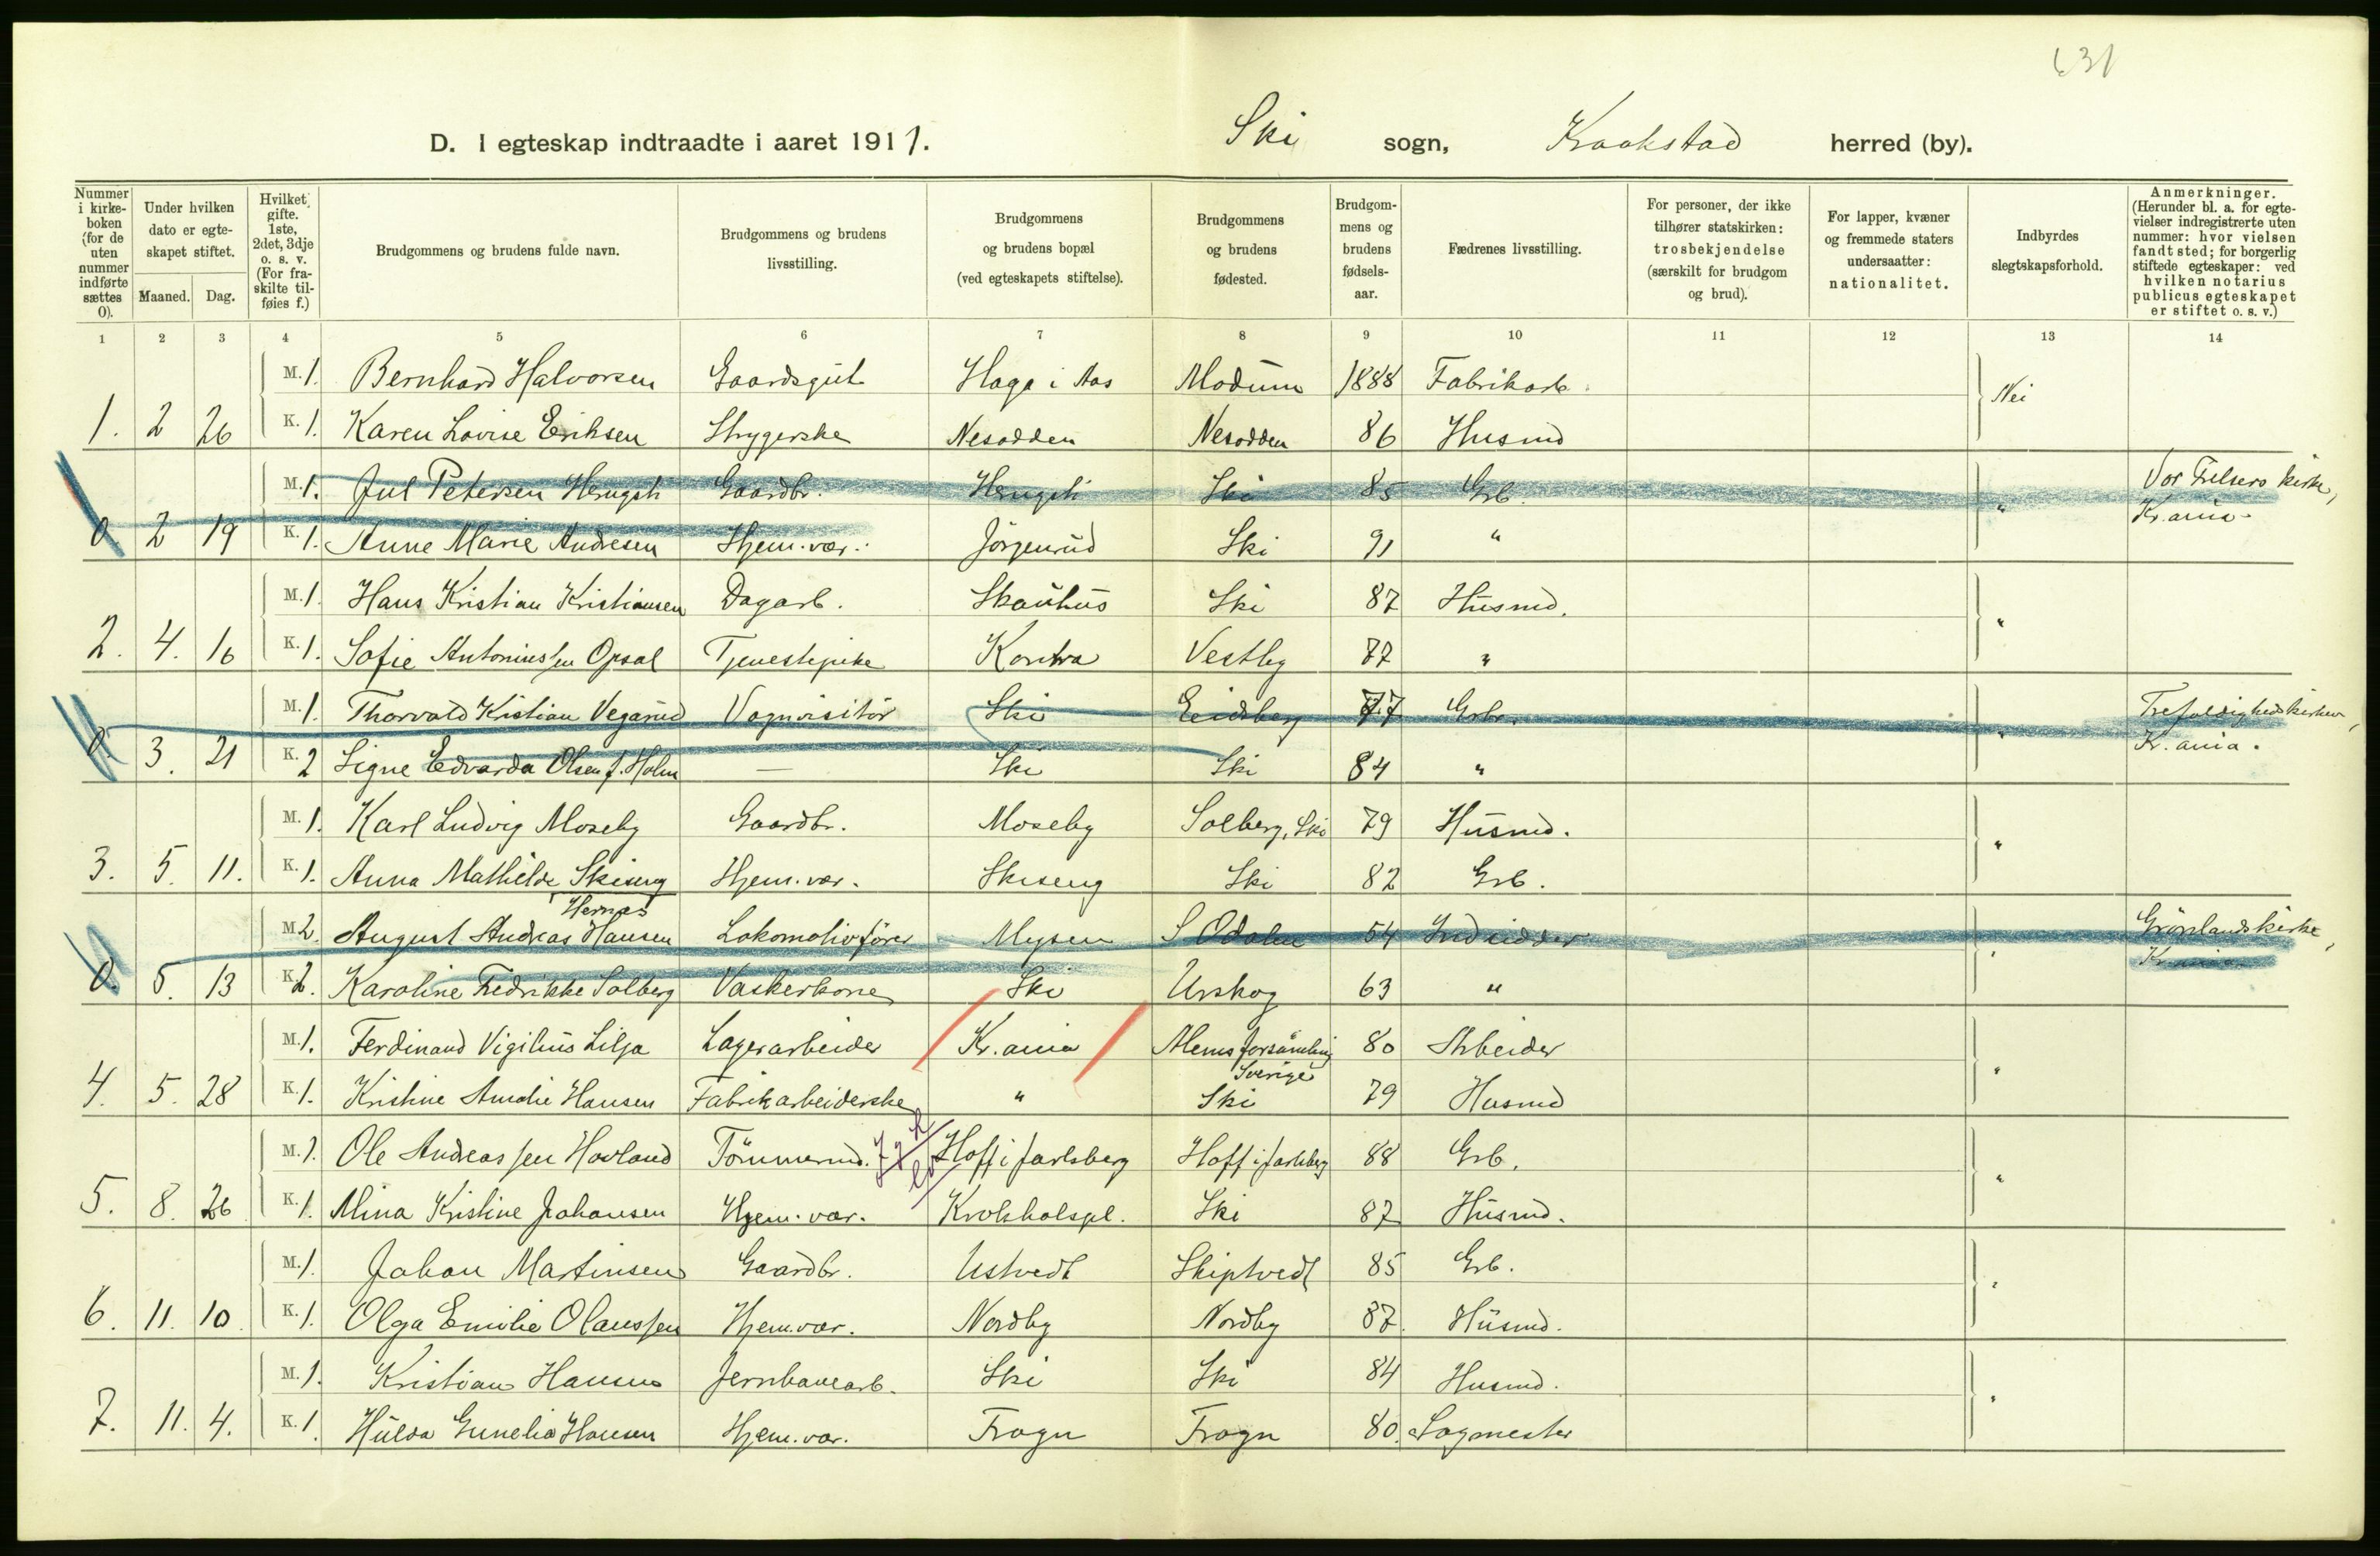 631
D. I egteskap indtraadte i aaret 1911. Ski sogn, Kraakstad herred (by).
Nummer i kirke-boken (for de uten nummer indførte sættes 0).
Under hvilken dato er egte-skapet stiftet.
Maaned. Dag.
Hvilket gifte. 1ste, 2det, 3dje o. s. v. (For fra-skilte til-føies f.)
Brudgommens og brudens fulde navn.
Brudgommens og brudens livsstilling.
Brudgommens og brudens bopæl (ved egteskapets stiftelse).
Brudgommens og brudens fødested.
Brudgom-mens og brudens fødsels-aar.
Fædrenes livsstilling.
For personer, der ikke tilhører statskirken: trosbekjendelse (særskilt for brudgom og brud).
For lapper, kvæner og fremmede staters undersaatter: nationalitet.
Indbyrdes slegtskapsforhold.
Anmerkninger. (Herunder bl. a. for egte-vielser indregistrerte uten nummer: hvor vielsen fandt sted; for borgerlig stiftede egteskaper: ved hvilken notarius publicus egteskapet er stiftet o. s. v.)
1 2 3 4 5 6 7 8 9 10 11 12 13 14
M. 1. Bernhard Halvorsen Gaardsgut Haga i Aas Modum 1888 Fabrikarb. Nei
1. 2 26 K. 1. Karen Lovise Eriksen Strygerske Nesodden Nesodden 86 Husmd
M. 1. Jul Petersen Gaardbr. Ski 85 Grb. " Vor Frelsers kirke,
0 2 19 K. 1. Anne Marie Andresen Hjem. vær. Jörgenrud Ski 91 " Kr.ania.
M. 1. Hans Kristian Kristiansen Dagarb. Skauhus Ski 87 Husmd. "
2. 4. 16 K. 1. Sofie Antoniussen Opsal Tjenestepike Kontra Vestby 77 "
M. 1. Thorvald Kristian Vegarud Vognvisitör Ski Eidsberg 77 Grbr. " Trefoldighedskirken,
0. 3. 21 K. 2 Signe Edvarda Olsen f. Holm — Ski Ski 84 " Kr.ania.
M. 1. Karl Ludvig Moseby Gaardbr. Moseby Solberg, Ski 79 Husmd. "
3. 5. 11. K. 1. Anna Mathilde Skiseng Hjem. vær. Skiseng Ski 82 Grb.
Hernæs
M. 2. August Andreas Hansen Lokomotivförer Mysen S Odalen 54 Inderidder " Grönlandskirke,
0. 5. 13 K. 2. Karoline Fredrikke Solberg Vaskerkone Ski Urskog 63 " Kr.ania
M. 1. Ferdinand Vigilius Lilja Lagerarbeider Kr.ania forsamling 80 Arbeider "
Sverige
4. 5. 28 K. 1. Kristine Amalie Hansen Fabrikarbeiderske " Ski 79 Husmd
M. 1. Ole Andreassen Hovland Tömmermd. Hoff i Jarlsberg Hoff i Jarlsberg 88 Grb. "
5. 8. 26 K. 1. Mina Kristine Johansen Hjem. vær. Krokholspl. Ski 87 Husmd.
M. 1. Johan Martinsen Gaardbr. Ustvedt Skiptvedt 85 Grb. "
6. 11. 10 K. 1. Olga Emilie Olaussen Hjem. vær. Nordby Nordby 87. Husmd.
M. 1. Kristian Hansen Jernbanearb. Ski Ski 84 Husmd. "
7. 11. 4. K. 1. Hulda Hansen Hjem. vær. Frogn Frogn 80. Sagmester